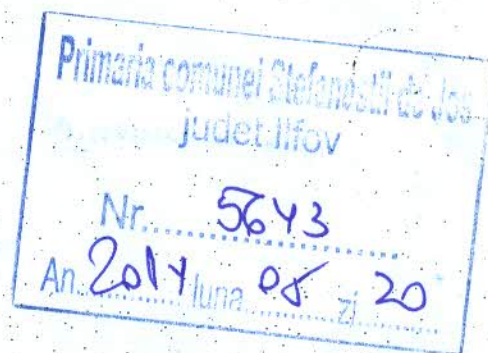 Primaria comunei Stefanestii de Jos
judet Ilfov
Nr. 5643
An 2014 luna 08 zi 20